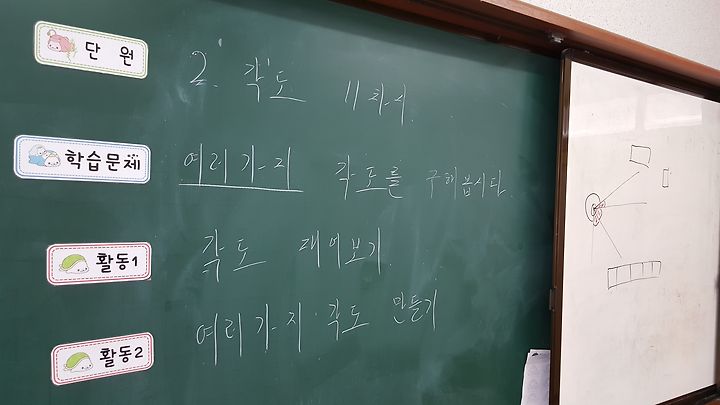 단 원
2. 각도 11차시
학습문제
여러가지 각도를 구해봅시다.
활동1
각도 재어보기
활동2
여러가지 각도 만들기